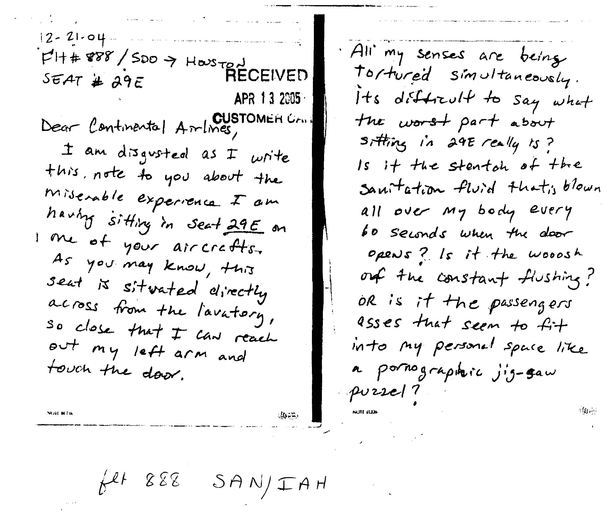 12-21-04
Flt # 888 / SDO → HOUSTON
SEAT # 29E
RECEIVED
APR 13 2005
CUSTOMER
Dear Continental Airlines,
I am disgusted as I write
this note to you about the
miserable experience I am
having sitting in seat 29E on
one of your aircrafts.
As you may know, this
seat is situated directly
across from the lavatory,
so close that I can reach
out my left arm and
touch the door.
All my senses are being
tortured simultaneously.
Its difficult to say what
the worst part about
sitting in 29E really is?
Is it the stentch of the
sanitation fluid that is blown
all over my body every
60 seconds when the door
opens? Is it the wooosh
of the constant flushing?
OR is it the passengers
asses that seem to fit
into my personal space like
a pornographic jig-saw
puzzel?
flt 888 SAN/IAH